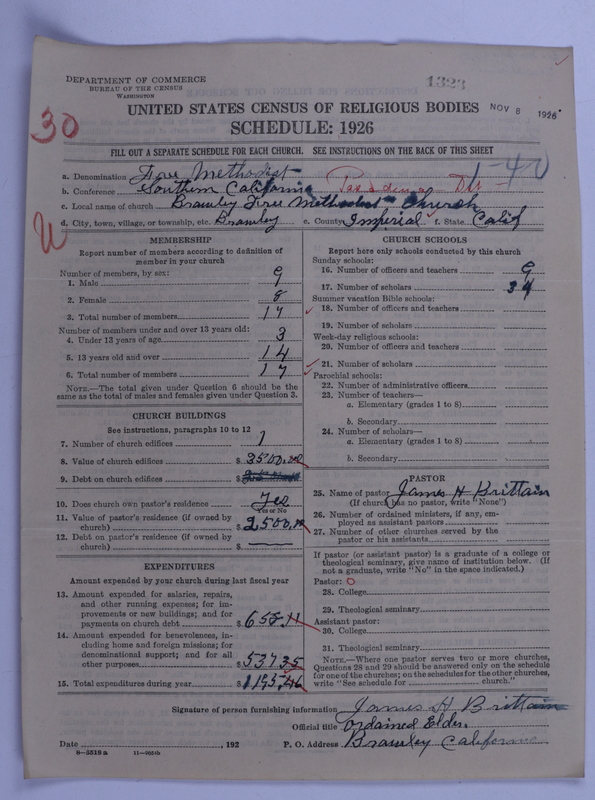 DEPARTMENT OF COMMERCE
BUREAU OF THE CENSUS
WASHINGTON
1323
NOV 8 1926
30
UNITED STATES CENSUS OF RELIGIOUS BODIES
SCHEDULE: 1926
FILL OUT A SEPARATE SCHEDULE FOR EACH CHURCH. SEE INSTRUCTIONS ON THE BACK OF THIS SHEET
a. Denomination Free Methodist
b. Conference Southern California Pasadena Dis
c. Local name of church Brawley Free Methodist Church
d. City, town, village, or township, etc. Brawley e. County Imperial f. State Calif
MEMBERSHIP
Report number of members according to definition of member in your church
Number of members, by sex:
1. Male 9
2. Female 8
3. Total number of members 17
Number of members under and over 13 years old:
4. Under 13 years of age 3
5. 13 years old and over 14
6. Total number of members 17
NOTE.—The total given under Question 6 should be the same as the total of males and females given under Question 3.
CHURCH BUILDINGS
See instructions, paragraphs 10 to 12
7. Number of church edifices 1
8. Value of church edifices $3500.00
9. Debt on church edifices $
10. Does church own pastor's residence Yes
Yes or No
11. Value of pastor's residence (if owned by church) $2500.00
12. Debt on pastor's residence (if owned by church) $
EXPENDITURES
Amount expended by your church during last fiscal year
13. Amount expended for salaries, repairs, and other running expenses; for improvements or new buildings; and for payments on church debt $658.11
14. Amount expended for benevolences, including home and foreign missions; for denominational support; and for all other purposes $537.35
15. Total expenditures during year $1195.46
CHURCH SCHOOLS
Report here only schools conducted by this church
Sunday schools:
16. Number of officers and teachers 9
17. Number of scholars 34
Summer vacation Bible schools:
18. Number of officers and teachers
19. Number of scholars
Week-day religious schools:
20. Number of officers and teachers
21. Number of scholars
Parochial schools:
22. Number of administrative officers
23. Number of teachers—
a. Elementary (grades 1 to 8)
b. Secondary
24. Number of scholars—
a. Elementary (grades 1 to 8)
b. Secondary
PASTOR
25. Name of pastor James H Brittain
(If church has no pastor, write "None")
26. Number of ordained ministers, if any, employed as assistant pastors
27. Number of other churches served by the pastor or his assistants
If pastor (or assistant pastor) is a graduate of a college or theological seminary, give name of institution below. (If not a graduate, write "No" in the space indicated.)
Pastor: O
28. College
29. Theological seminary
Assistant pastor:
30. College
31. Theological seminary
NOTE.—Where one pastor serves two or more churches, Questions 28 and 29 should be answered only on the schedule for one of the churches; on the schedules for the other churches, write "See schedule for church."
Signature of person furnishing information James H Brittain
Official title Ordained Elder.
Date , 192 P. O. Address Brawley California
8—5518 a